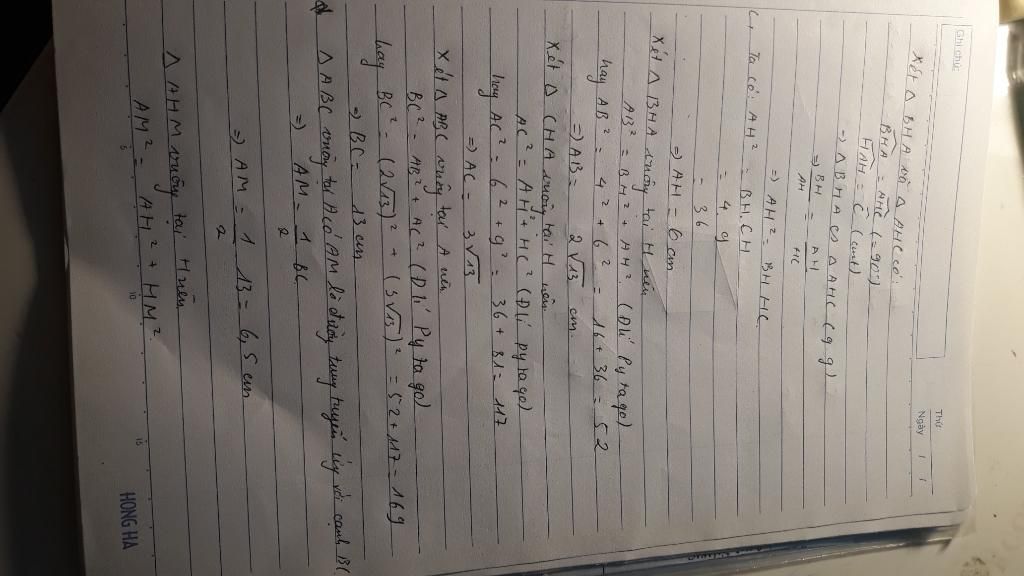 Ghi chú:
Thứ
Ngày / /
Xét △ BHA và △ AHC có:
BHA = AHC (= 90°)
HAH = C (cmt)
⇒ △ BHA ∽ △ AHC (g.g)
⇒ BH/AH = AH/HC
⇒ AH² = BH.HC
c, Ta có: AH² = BH.CH
= 4.9
= 36
⇒ AH = 6 cm
Xét △ BHA vuông tại H nên
AB² = BH² + AH² (Đlí Pytago)
hay AB² = 4² + 6² = 16 + 36 = 52
⇒ AB = 2√13 cm.
Xét △ CHA vuông tại H nên
AC² = AH² + HC² (Đlí pytago)
hay AC² = 6² + 9² = 36 + 81 = 117
⇒ AC = 3√13
Xét △ ABC vuông tại A nên
BC² = AB² + AC² (Đlí Pytago)
hay BC² = (2√13)² + (3√13)² = 52 + 117 = 169
⇒ BC = 13 cm
△ ABC vuông tại A có AM là đường trung tuyến ứng với cạnh BC
⇒ AM = 1/2 BC
⇒ AM = 1/2 13 = 6,5 cm
△ AHM vuông tại H nên
AM² = AH² + HM².
5 10 15
HONG HA